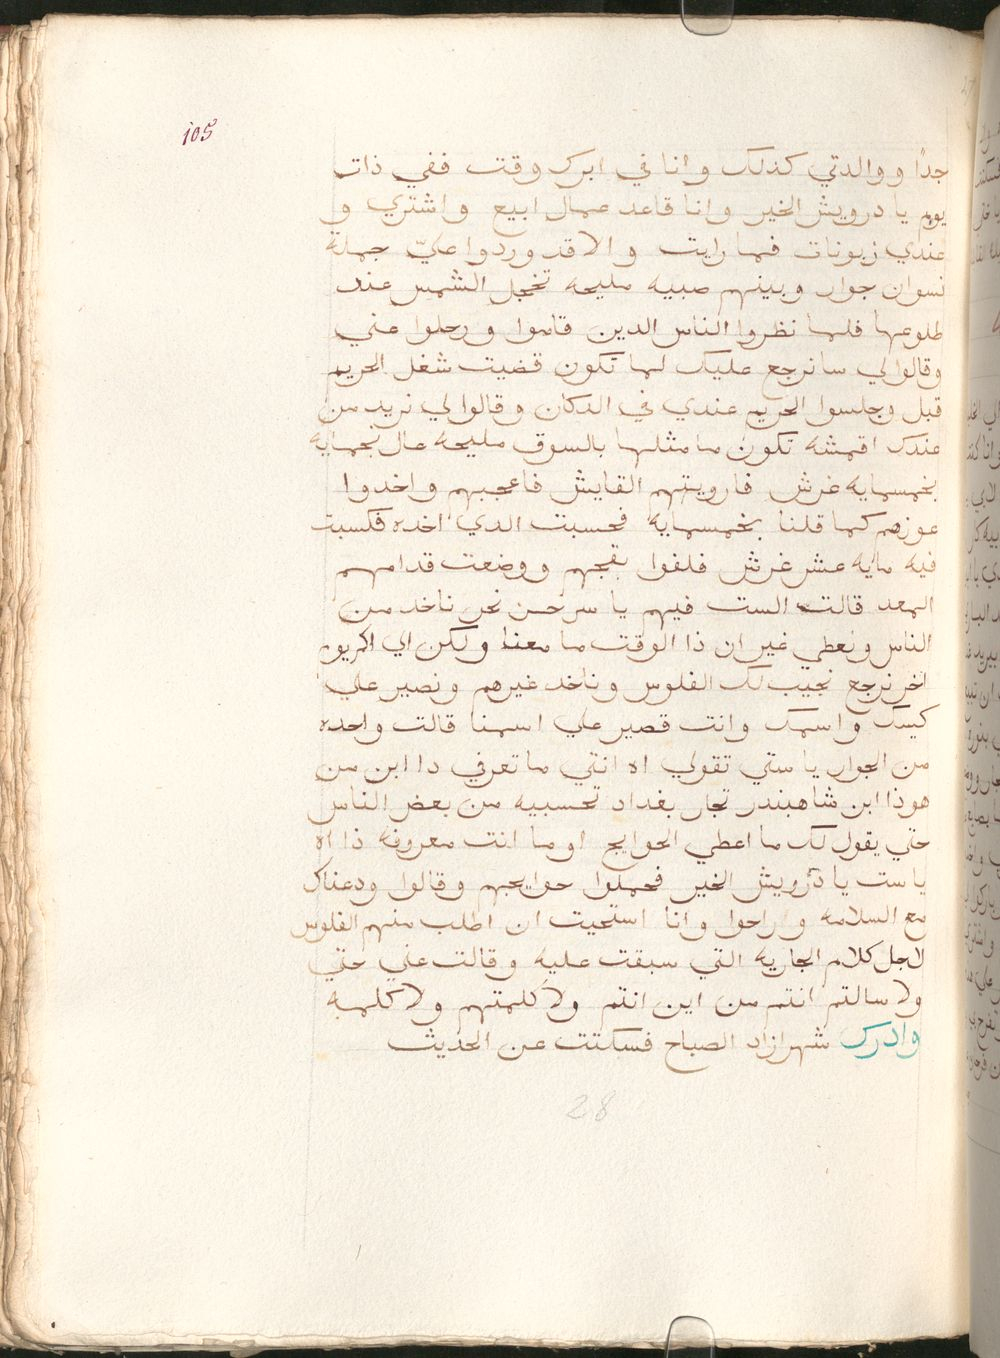 105
جدًا ووالدتي كذلك وانا في ابرك وقت ففي ذات
يوم يا درويش الخير وانا قاعد عمال ابيع واشتري و
عندي زبونات فما رايت والا قد وردوا عليّ جملة
نسوان جوار وبينهم صبيه مليحه تخجل الشمس عند
طلوعها فلما نظروا الناس الدين قاموا ورحلوا عني
وقالوا لي سا نرجع عليك لما تكون قضيت شغل الحريم
قبل وجلسوا الحريم عندي في الدكان وقالوا لي نريد من
عندك اقمشه تكون ما مثلها بالسوق مليحه عال بخمسمايه
بخمسمايه غرش فارويتهم القايش فاعجبهم واخدوا
عوزهم كما قلنا بخمسمايه فحسبت الدي اخده فكسبت
فيه مايه عشر غرش فلفوا بقجهم ووضعت قدامهم
المعد قالت الست فيهم يا سر حسن نحن ناخد من
الناس ونعطي غير ان ذا الوقت ما معنا ولكن اي اكريوم
اخر نرجع نجيب لك الفلوس وناخد غيرهم ونصير علي
كيسك واسمك وانت تصير علي اسمنا قالت واحده
من الجوار يا ستي تقولي اه انتي ما تعرفي دا ابن من
هوذا ابن شاهبندر تجار بغداد تحسبيه من بعض الناس
حتي يقول لك ما اعطي الحوايج او ما انت معروفه ذا اه
يا ست يا درويش الخير فحملوا حوايجهم وقالوا ودعناك
مع السلامه وراحوا وانا استحيت ان اطلب منهم الفلوس
لاجل كلام الجاريه التي سبقت عليه وقالت عني حتي
ولا سالتم انتم من اين انتم ولا كلمتهم ولا كلمه
وادرك شهرازاد الصباح فسكتت عن الحديث
28